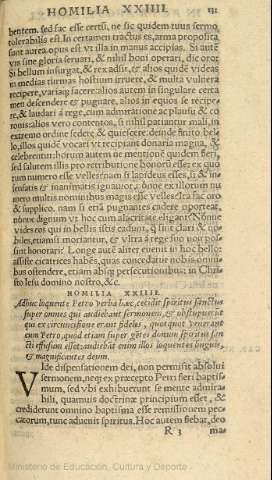 HOMILIA XXIIII. 131
bentem. sed fac esse certũ, ne sic quidem tuus sermo
tolerabilis est. In certamen tractus es, arma proposita
sunt aurea. opus est vt illa in manus accipias. Si autẽ
vis sine gloria seruari, & nihil boni operari, dic oro:
Si bellum insurgat, & rex adsit, & alios quidẽ videas
in medias turmas hostium irruere, & multa vulnera
recipere, alios autem in singulare certa
men descendere & pugnare, alios in equos se recipe-
re, & laudari à rege, cum admiratione ac plausu & co
ronis: alios vero contentos, si nihil patiantur mali, in
extremo ordine sedere & quiescere. deinde finito bel-
lo, illos quidẽ vocari vt recipiant donaria magna, &
celebrentur: horum autem ne mentionẽ quidem fieri,
sed salutem illis pro retributione bonorũ esse: ex quo
rum numero esse velles? nam si lapideus esses, si & in-
sensatis & inanimatis ignauior, nõnne ex illorum nu
mero multis nominibus magis esse velles? Ita fac oro
& supplico. nam si etiã pugnantes cadere oporteat,
nõnne dignum vt hoc cum alacritate eligant? Nõnne
videtis eos qui in bellis istis cadunt, quã sint clari & no
biles, etiamsi moriantur, & vltra à rege suo non pos
sint honorari? Longe autẽ aliter euenit in hoc bello:
cicatrices habẽs, quas concedatur nobis omni-
bus ostendere, etiam absq; persecutionibus: in Chri-
sto Iesu domino nostro, &c.
HOMILIA XXIIII.
Adhuc loquente Petro verba hæc, cecidit spiritus sanctus
super omnes qui audiebant sermonem, & obstupuerũt
qui ex circuncisione erant fideles, quot quot venerant
cum Petro, quod etiam super gẽtes donum spiritus san
cti effusum esset: audiebãt enim illos loquentes linguis,
& magnificantes deum.
VIde dispensationem dei, non permisit absolui
sermonem, neq; ex præcepto Petri fieri baptis-
mum, sed vbi exhibuerunt se mente admira-
bili, quamuis doctrinæ principium esset, &
crediderunt omnino baptisma esse remissionem pec
catorum, tunc aduenit spiritus. Hoc autem fiebat, deo
R 3 ma-
Ministerio de Educación, Cultura y Deporte